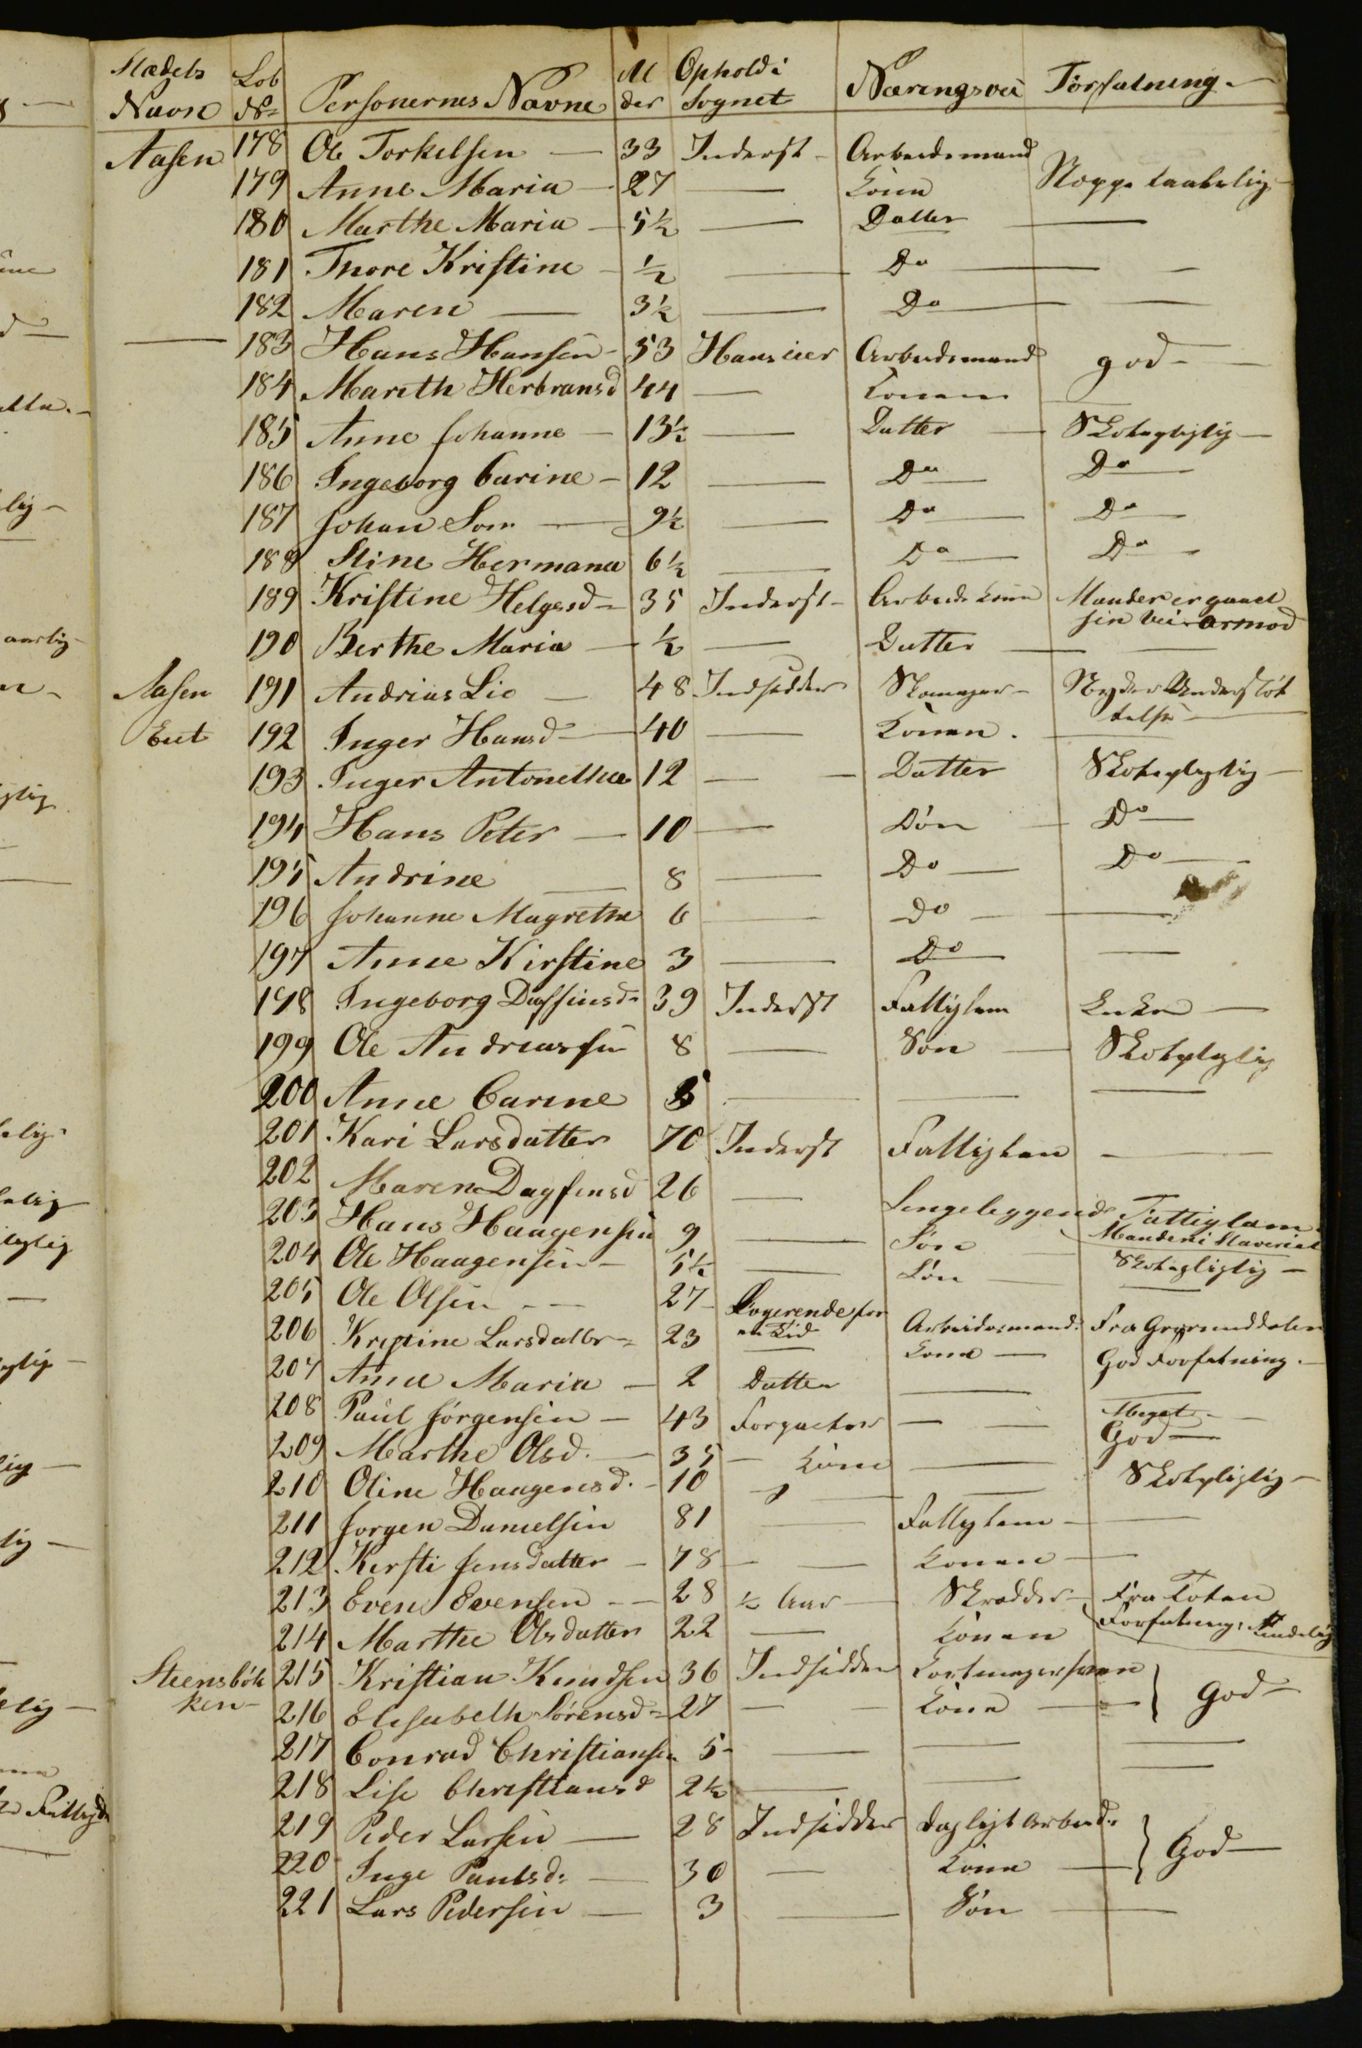 Stædets Navn Lob No Personernes Navne Alder Ophold i Sognet Næringsvei Forfatning
Aasen 178 Ole Torkelsen — 33 Inderst — Arbeidsmand
179 Anne Maria — 27 — Kone Noppe taalelig
180 Marthe Maria — 5½ — Datter —
181 Thore Kristine — ½ — Do — —
182 Maren — 3½ — Do — —
— 183 Hans Hansen — 53 Huusieer Arbeidsmand god —
184 Mareth Herbransd 44 — Konen —
185 Anne Johanne — 13½ — Datter — Skolepligtig —
186 Ingeborg Carine — 12 — Do — Do —
187 Johan Søn — 9½ — Do — Do —
188 Stine Hermana 6½ — Do — Do —
189 Kristine Helgesd — 35 Inderst — Arbeids kone Manden er gaaet
sin vei Armod
190 Berthe Maria — ½ — Datter — —
Aasen 191 Andrias Lie — 48 Indsidder Skomager — Nyder Understøt
telse —
Eiet 192 Inger Hansd — 40 — Konen. —
193 Inger Antonethe 12 — — Datter Skolepligtig —
194 Hans Peter — 10 — Søn — Do —
195 Andrine — 8 — Do — Do —
196 Johanne Magrethe 6 — Do — —
197 Anne Kirstine 3 — Do —
198 Ingeborg Dagfinsd 39 Inderst Fattiglem Enke —
199 Ole Andreassen 8 — Søn — Skolepligtig
200 Anne Carine 5 — — —
201 Kari Larsdatter 70 Inderst Fattiglem —
202 Maren Dagfinsd 26 — Sengeleggende Fattiglem
Manden i Slaveriet
203 Hans Haagensen 9 — Søn —
204 Ole Haagensen — 5½ — Søn — Skolepligtig —
205 Ole Olsen — 27 — Logerende for
en tid Arbeidsmand Fra
206 Kristine Larsdatter 23 — Kone — God Forfatning —
207 Anne Maria — 2 Datter —
208 Paul Jørgensen — 43 Forpacter — — Meget
God —
209 Marthe Olsd. — 35 — Kone —
210 Oline Haagensd. — 10 — — Skolepligtig —
211 Jorgen Danielsen 81 — Fattiglem — —
212 Kersti Jensdatter — 78 — — Konen —
213 Even Evensen — 28 ½ Aar — Skrædder — Fra Toten
214 Marthe Olsdatter 22 — Konen Forfatning:
Steensbök
ken — 215 Kristian Knudsen 36 Indsidder God —
216 Elisabeth Sörensd — 27 — — Kone —
217 Conrad Christiansen 5 — — — —
218 Lise Christiansd 2½ — — —
219 Peder Larsen — 28 Indsidder Dagligt Arbeide God —
220 Inge Paulsd: — 30 — Kone —
221 Lars Pedersen — 3 — Søn —